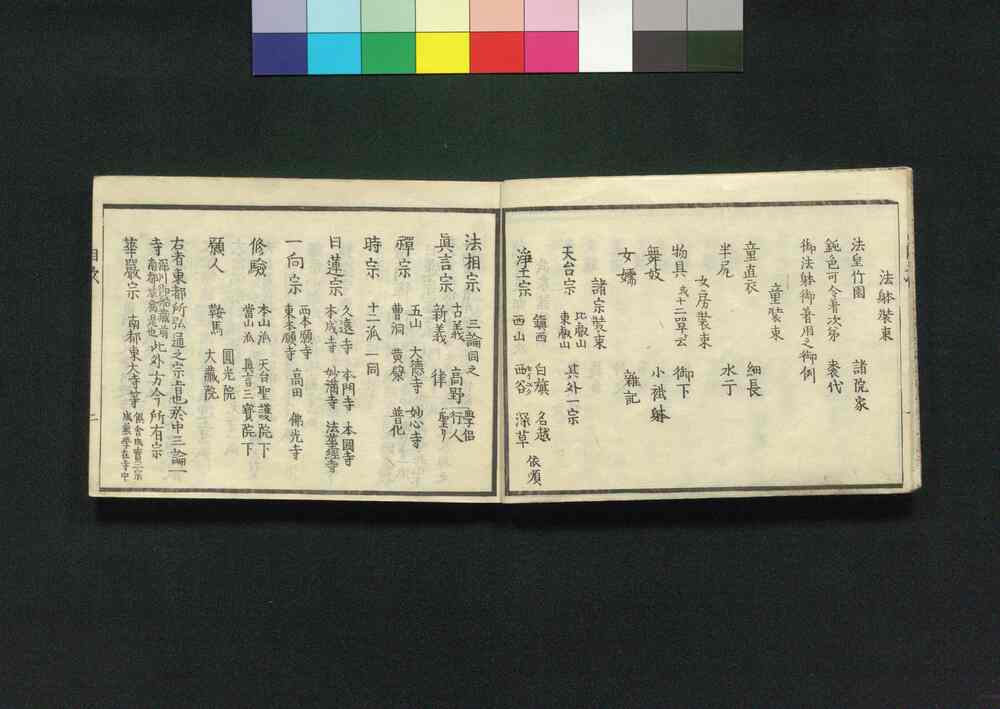 法躰装束
法皇竹園　諸院家
鈍色可令著次第　裘代
御法躰御著用之御例
童装束
童直衣　細長
半尻　水干
女房装束
物具 或十二単云　御下
舞妓　小袿躰
女嬬　雑記
諸宗装束
天台宗　比叡山 東叡山　其外一宗
浄土宗　鎮西 西山　白旗 西谷　名越 深草　依頼
法相宗　三論同之
眞言宗　古義 新義　高野 律　學侶 行人 聖リ
禪宗　五山 曹洞　大德寺 黄檗　妙心寺 普化
時宗　十二派一同
日蓮宗　久遠寺 本成寺　本門寺 妙滿寺　本圀寺 法華經寺
一向宗　西本願寺 東本願寺　高田　佛光寺
修驗　本山派 天台聖護院下 當山派 眞言三寳院下
願人　鞍馬　圓光院 大藏院
右者東都所弘通之宗旨也於中三論一
寺 此外方今所有宗
華嚴宗　南都東大寺等 倶舍成實二宗